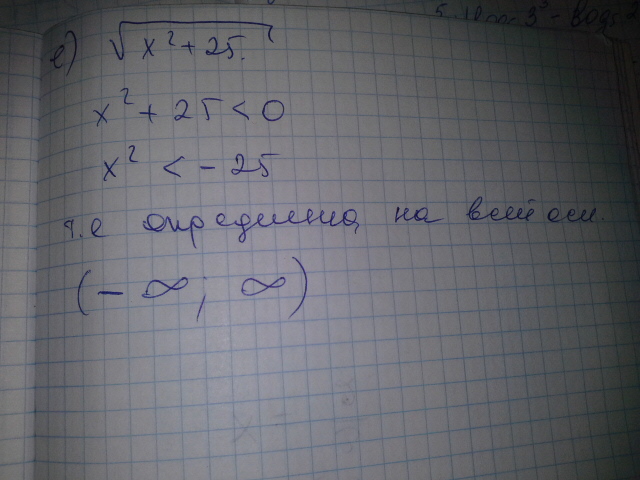 е) √x²+25.
x² + 25 < 0
x² < - 25
т.е определина на всей оси.
(- ∞; ∞)